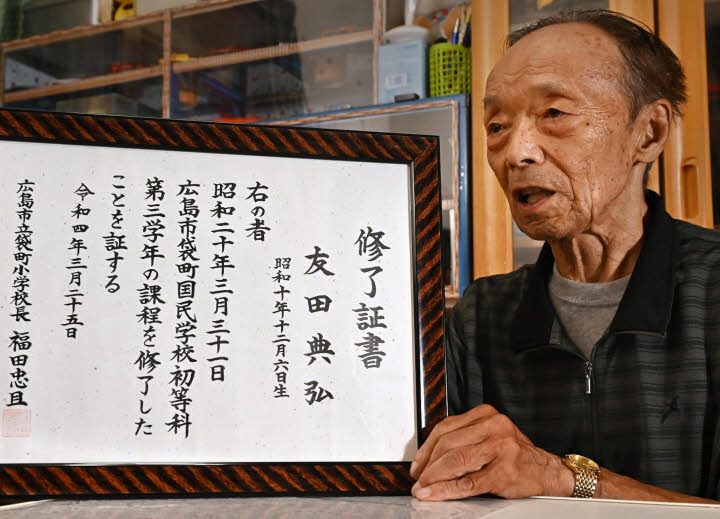 修了証書
友田典弘
昭和十年十二月六日生
右の者
昭和二十年三月三十一日
広島市袋町国民学校初等科
第三学年の課程を修了した
ことを証する
令和四年三月二十五日
広島市立袋町小学校長 福田忠且